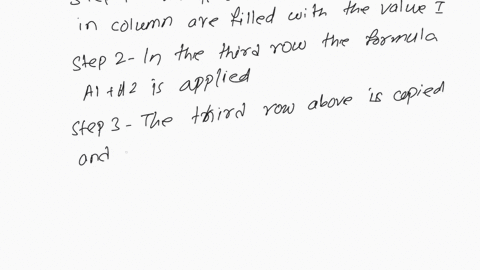 in column are filled with the value I
Step 2 - In the third row the formula
A1 + A2 is applied
Step 3 - The third row above is copied
and